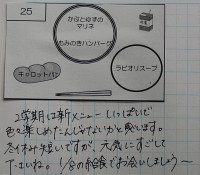 25
かぶとゆずの
マリネ
もみのきハンバーグ
キャロットパン
ラビオリスープ
2学期は新メニューいっぱいで
色々楽しめたんじゃないかと思います。
冬休み短いですが、元気にすごして
下さいね。1/8の給食でお会いしましょう〜